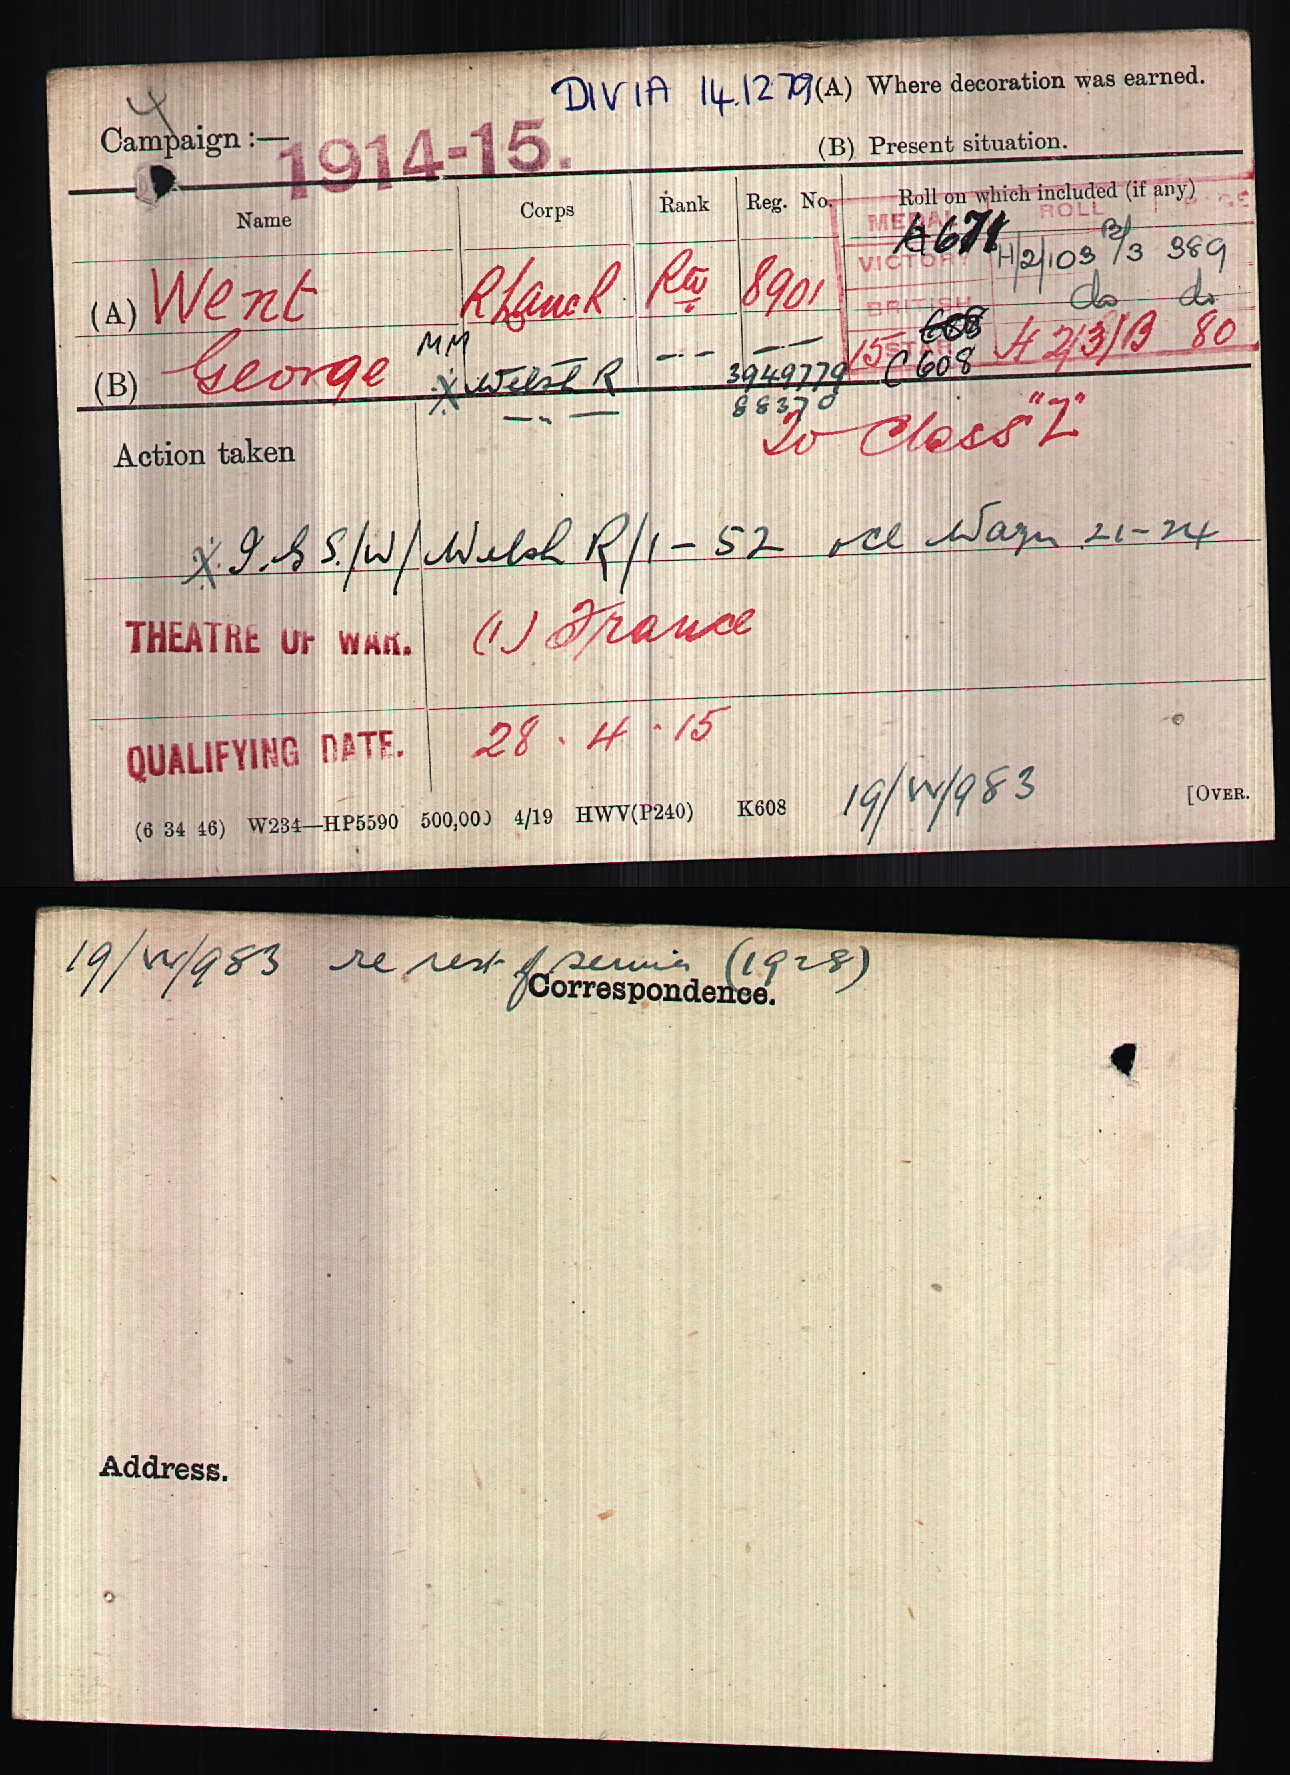 DIV 1A 14.12.79 (A) Where decoration was earned.
Campaign :— 1914-15.
(B) Present situation.
Name Corps Rank Reg. No. Roll on which included (if any)
MEDAL ROLL
A671
(A) Went R Lanc R Pte 8901 VICTORY H/2/103 B/3 389
BRITISH do do
MM 608
(B) George X Welsh R —"— 3949779 15 STAR C608 H 2/3/B 80
—"— 88370
To Class "Z"
Action taken
X I.G.S./W/Welsh R/1-52 Wazn 21-24
THEATRE OF WAR. (1) France
QUALIFYING DATE. 28.4.15
(6 34 46) W234—HP5590 500,000 4/19 HWV(P240) K608 19/W/983 [OVER.
19/W/983 re rest of service (1928)
Correspondence.
Address.